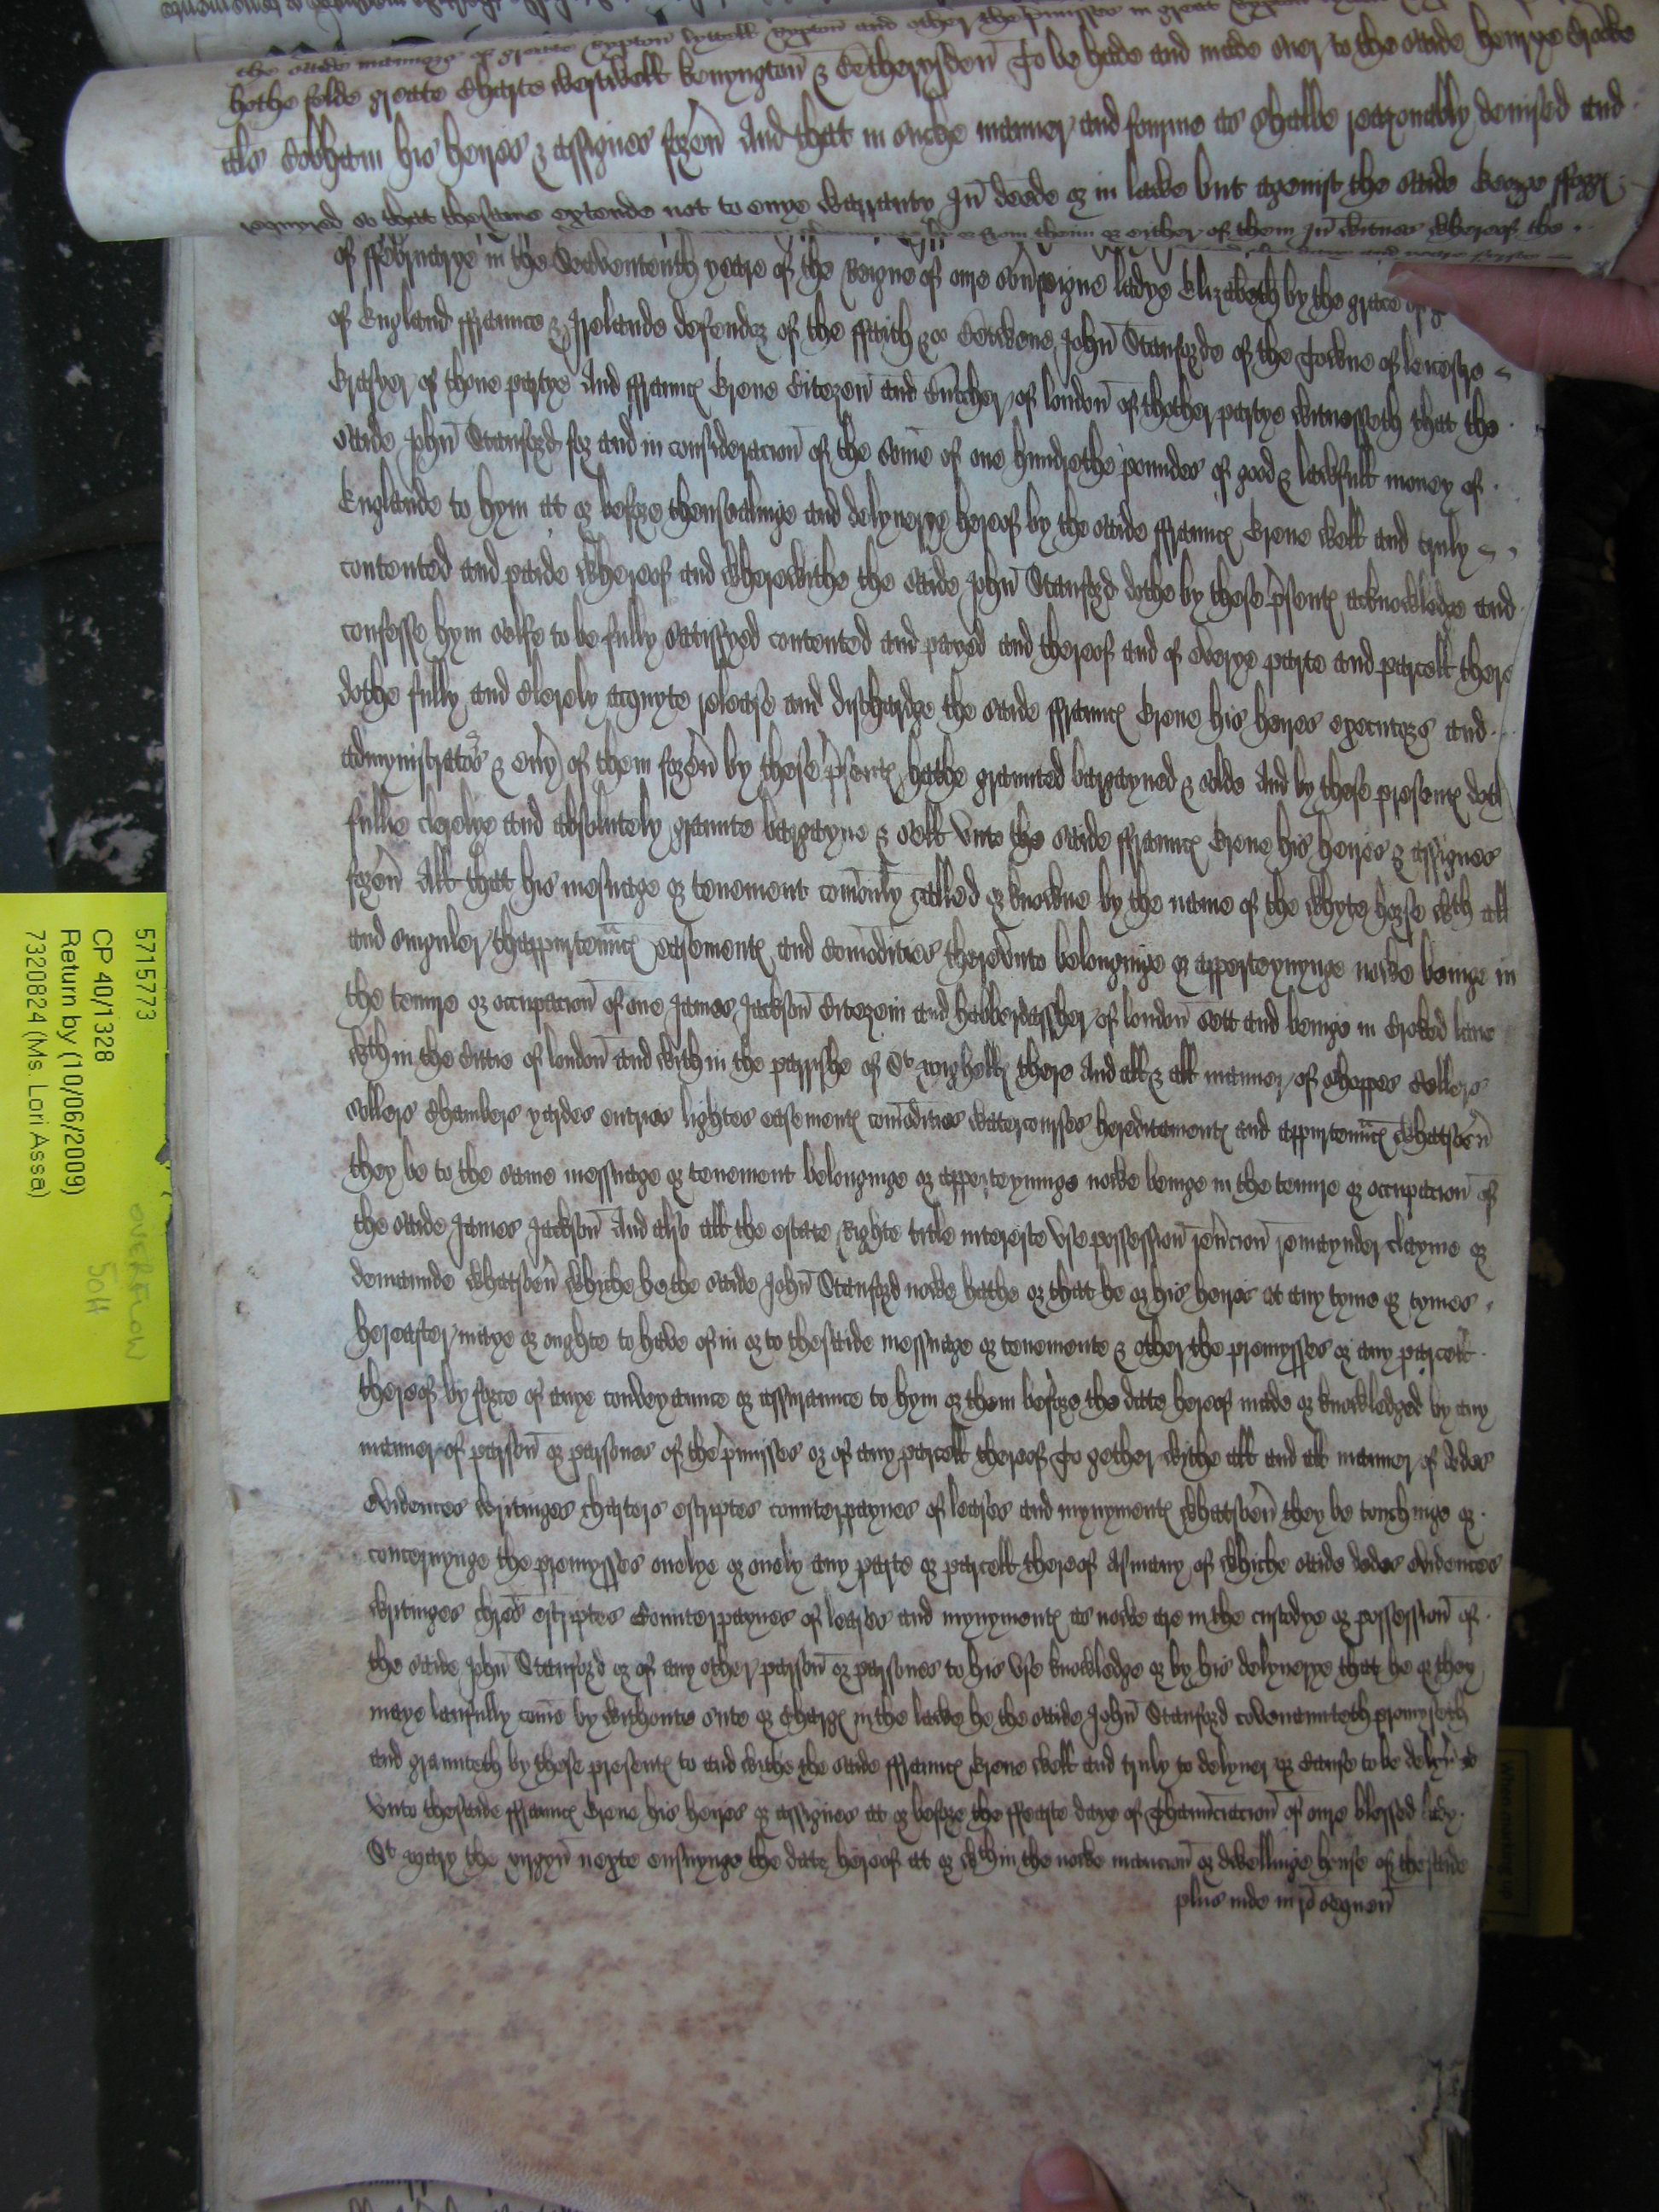 the saide mannors of greate Sypton lyttell Sypton and other the pmisses in great Sypton
hothe felde greate Charte Westwell Kenyngton & Betherysden To be hade and made over to the saide Henrye Brooke
als Cobham his heires & assignes foreṽ And that in suche manner and fourme as shalbe reazonably devised and
requyred so that the same extende not to enye warranty In deede or in lawe but ageinst the saide George
of them In witnes whereof the
of ffebruarye in the Seavententh yeare of the Reigne of oure soṽeigne ladye Elizabeth by the grace of
of England ffraunce & Irelande defendor of the ffaith &c Betwene John Stanforde of the Towne of leicestre
Grasyer of thone partye And ffraunc Grene Citezen and Butcher of london of thother partye witnesseth that the
saide John Stanford for and in consideracion of the some of one hundrethe poundes of good & lawfull money of
Englande to hym at or before thensealinge and delyverye hereof by the saide ffraunc Grene well and truly
contented and paide whereof and wherewithe the saide John Stanford dothe by these psentc acknowledge and
confesse hym selfe to be fully satisfyed contented and payed and thereof and of everye parte and parcell there
dothe fully and Clerely acquyte release and dischardge the saide ffraunc Grene his heires executors and
admynistrators & eṽy of them foreṽ by these psentc hathe graunted bargayned & solde And by these presentc doth
fullie clerelye and absolutely graunte bargayne & sell unto the saide ffraunc Grene his heires & assignes
foreṽ All that his mesuage or tenement comonly called or knowne by the name of the Whyte horse wth all
and singuler thappurtenncs easementc and Comodities therevnto belonginge or apperteynynge nowe beinge in
the tenure or occupacion of one James Jackson Citezein and habberdassher of london sett and beinge in Croked lane
wthin the Cittie of london and within the parrishe of St Mighells there And all & all manner of shoppes Sellers
sollers Chambers yardes entries lightes easementc comodities watercourses hereditamentc and appurtenncs whatsoeṽ
they be to the same messuage or tenement belonginge or apperteyninge nowe beinge in the tenure or occupacion of
the saide James Jackson And also all the estate Righte title intereste vse possession reṽcion remaynder clayme or
demaunde whatsoeṽ whiche he the saide John Stanford nowe hathe or that he or his heires at any tyme or tymes
hereafter maye or oughte to have of in or to thesaide messuage or tenemente & other the premysses or any parcell
thereof by force of anye conveyaunce or assuraunce to hym or them before the date hereof made or knowledged by any
manner of parson or parsones of the pmisses or of any parcell thereof To gether withe all and all manner of dedes
evidences writinges charters escriptes counterpaynes of leases and mynymentc whatsoeṽ they be touchinge or
concernynge the premysses onelye or onely any parte or parcell thereof Asmany of whiche saide dedes evidences
writinges chres escriptes Counterpaynes of leases and mynymentc as nowe are in the custodye or possession of
the saide John Stanford or of any other parson or parsones to his vse knowledge or by his delyverye that he or they
maye laufully come by withoute sute or charge in the lawe he the saide John Stanford covenaunteth promyseth
and graunteth by these presentc to and withe the saide ffraunc Grene well and truly to delyver or cause to be delyṽed
vnto thesaide ffraunc Grene his heires or assignes at or before the ffeaste daye of Thannunciacion of oure blessed lady
St Mary the virgyn nexte ensuynge the date hereof at or wthin the nowe mancion or dwellinge house of thesaide
plus inde in ro sequen
5715773
CP 40/1328
Return by (10/06/2009)
7320824 (Ms. Lori Assa)
OVERFLOW
50H